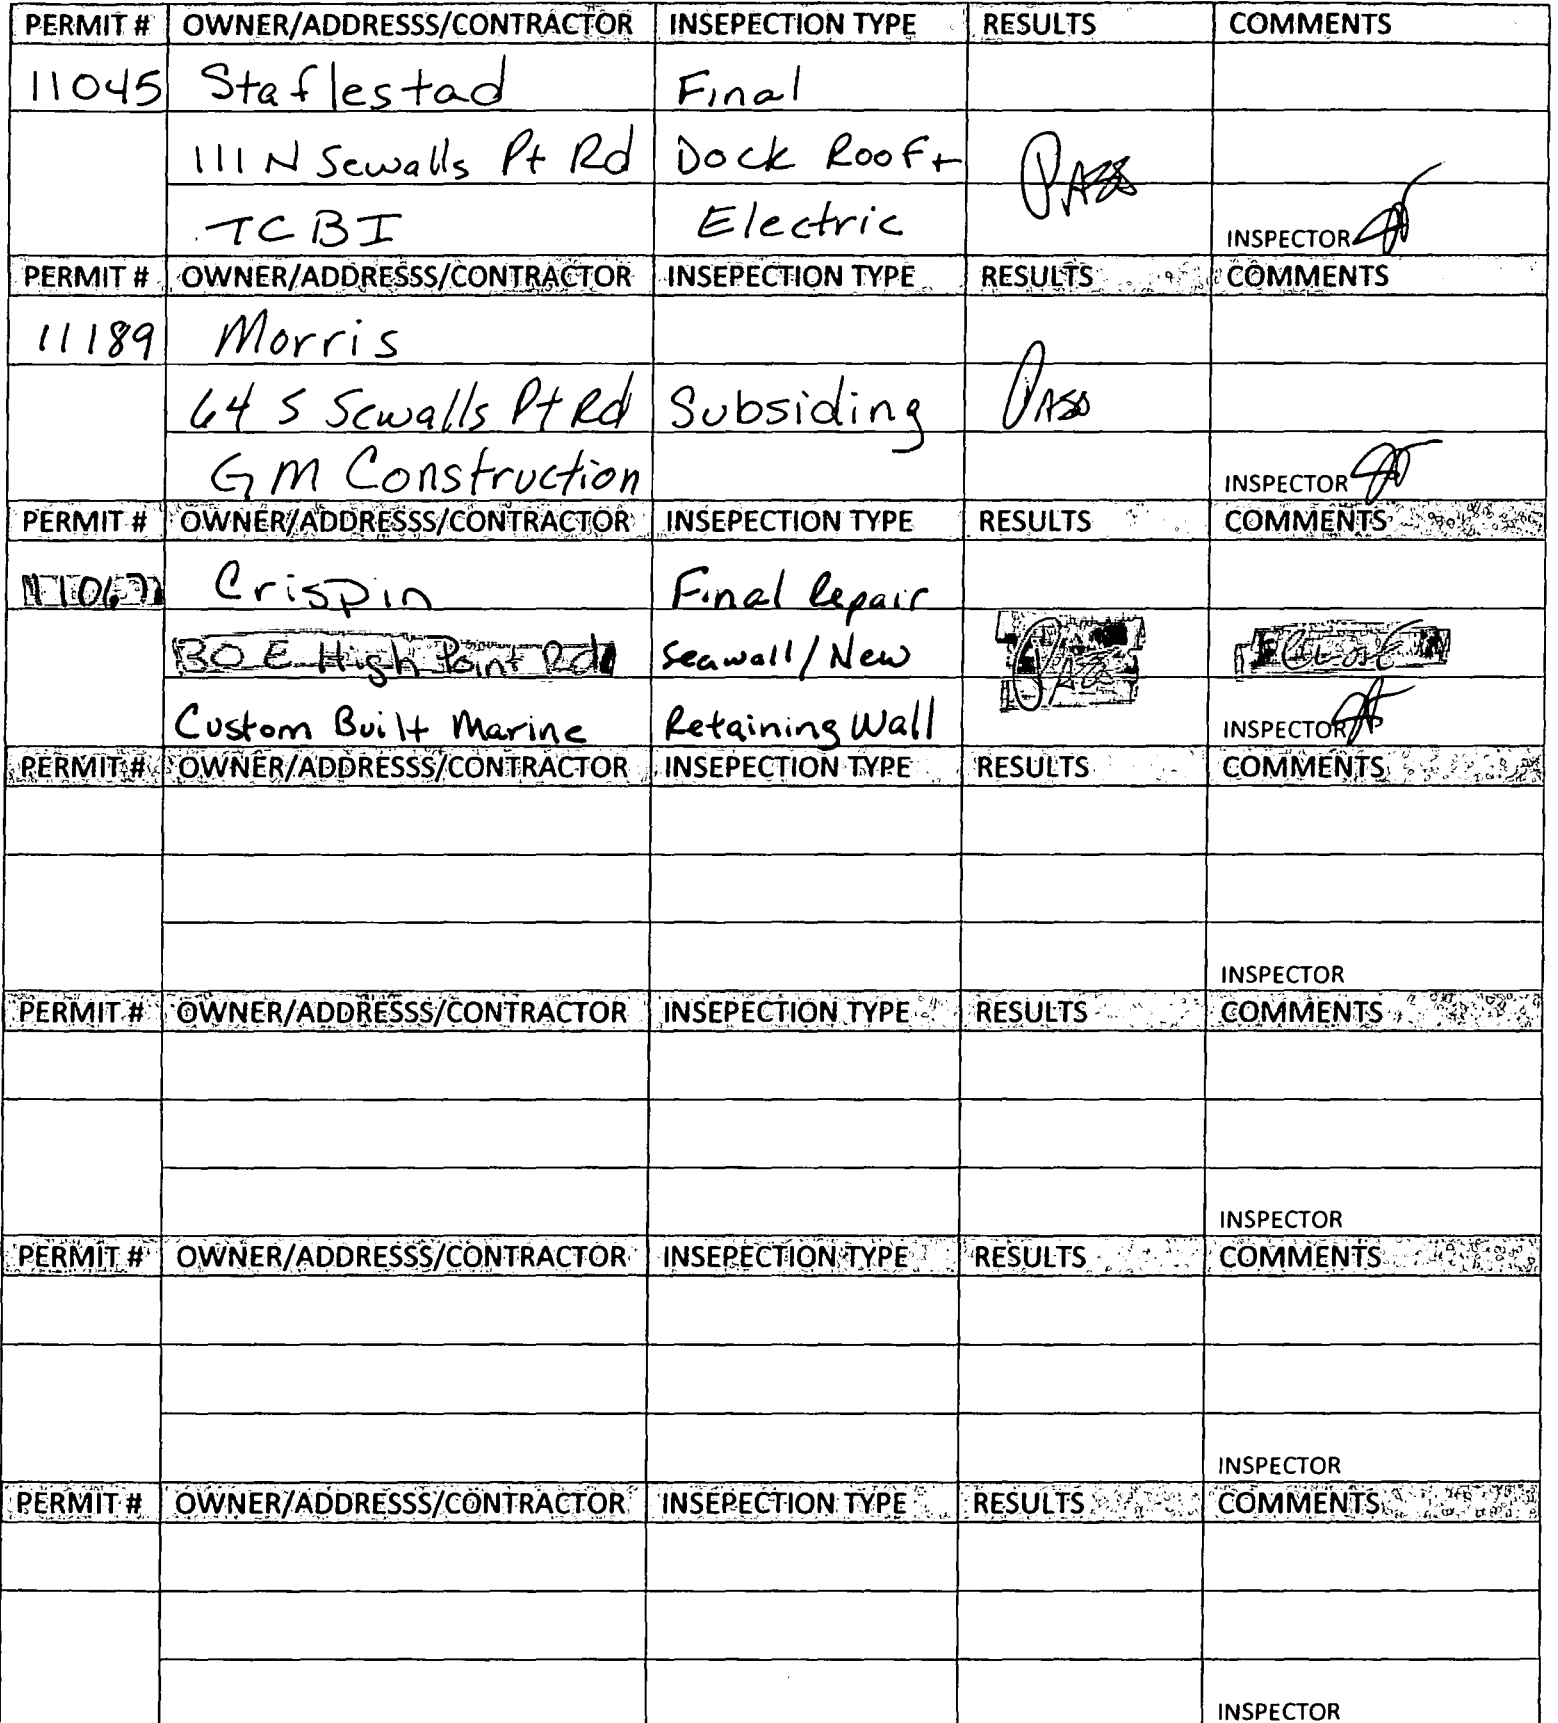 PERMIT # OWNER/ADDRESSS/CONTRACTOR INSEPECTION TYPE RESULTS COMMENTS
11045 Staflestad Final
111 N Sewalls Pt Rd Dock Roof + PASS
TCBI Electric INSPECTOR
PERMIT # OWNER/ADDRESSS/CONTRACTOR INSEPECTION TYPE RESULTS COMMENTS
11189 Morris
64 S Sewalls Pt Rd Subsiding PASS
GM Construction INSPECTOR
PERMIT # OWNER/ADDRESSS/CONTRACTOR INSEPECTION TYPE RESULTS COMMENTS
Crispin Final Repair
30 E High Point Rd Seawall/New PASS Close
Custom Built Marine Retaining Wall INSPECTOR
PERMIT # OWNER/ADDRESSS/CONTRACTOR INSEPECTION TYPE RESULTS COMMENTS
INSPECTOR
PERMIT # OWNER/ADDRESSS/CONTRACTOR INSEPECTION TYPE RESULTS COMMENTS
INSPECTOR
PERMIT # OWNER/ADDRESSS/CONTRACTOR INSEPECTION TYPE RESULTS COMMENTS
INSPECTOR
PERMIT # OWNER/ADDRESSS/CONTRACTOR INSEPECTION TYPE RESULTS COMMENTS
INSPECTOR